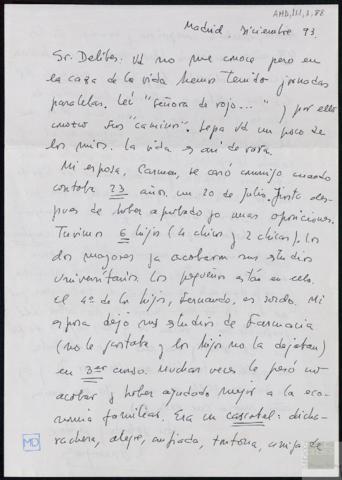 AMD,111,1,88
Madrid, diciembre 93.
Sr. Delibes. Vd no me conoce pero en
la caza de la vida hemos tenido jornadas
paralelas. Leí "Señora de rojo..." y por ello
conozco sus "caminos". Sepa Vd un poco de
los míos. La vida es así de rara.
Mi esposa, Carmen, se casó conmigo cuando
contaba 23 años, un 20 de Julio. Justo des-
pués de haber aprobado yo unas oposiciones.
Tuvimos 6 hijos (4 chicos y 2 chicas). Los
dos mayores ya acabaron sus estudios
universitarios. Los pequeños están en ello.
El 4º de los hijos, Fernando, es sordo. Mi
esposa dejó sus estudios de Farmacia
(no le gustaba y los hijos no la dejaban)
en 3er curso. Muchas veces le pesó no
acabar y haber ayudado mejor a la eco-
nomía familiar. Era un cascabel: dicha-
rachera, alegre, confiada, tontona, amiga de
MD